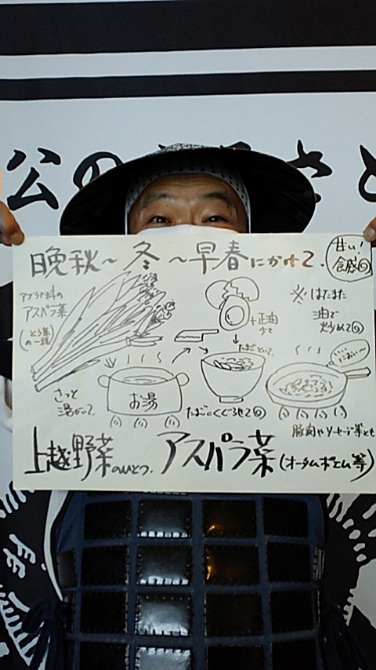 公の
さと
晩秋〜冬〜早春にかけて、
甘い!
食感◎
アブラナ科の
アスパラ菜
(とう菜
の一種)
※はたまた
油で
炒めて◎
さっと
湯がいて
お湯
+正油
たまごにくぐらせて◎
豚肉やソーセージ等とも
上越野菜のひとつ、アスパラ菜(オータムポエム等)